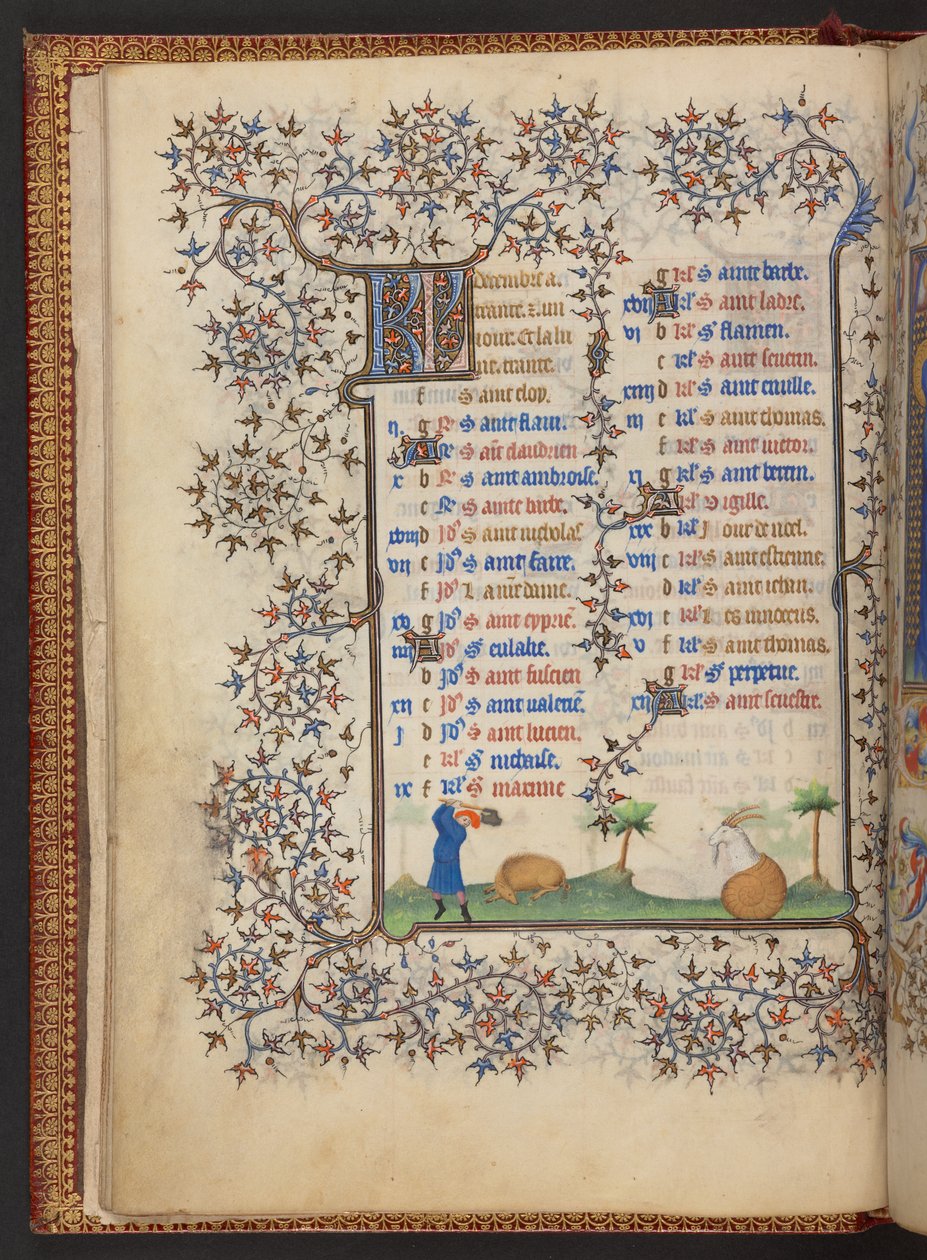 KL
Decembre a.
trante. z. un
iour. Et la lu
ne. trante.
f Saint eloy.
ij. g N̄ Saint flaui.
A N̄ Saīt claudrien
x b N̄ Saint ambroise.
c N̄ Sainte barbe.
xviij d Id9 Saint nicholas.
vij e Id9 Saint fare.
f Id9 La n̄re dame.
xv g Id9 Saint cyprie̅.
iiij A Id9 S' eulalie.
b Id9 Saint fuscien
xij c Id9 Saint valerie̅.
j d Id9 Saint lucien.
e kl' S' nichaise.
ix f kl' S maxime
g kl' Sainte barbe.
xvij A kl' Saint ladre.
vj b kl' S' flamen.
c kl' Saint seuerin.
xiiij d kl' Saint enille.
iij e kl' Saint thomas.
f kl' Saint victor.
xj g kl' Saint bertin.
A kl' Vigille.
xix b kl' Jour de noel.
viij c kl' Saint estienne.
d kl' Saint iehan.
xvj e kl' Les innocens.
v f kl' Saint thomas.
g kl' S' perpetue.
xiij A kl' Saint seuestre.